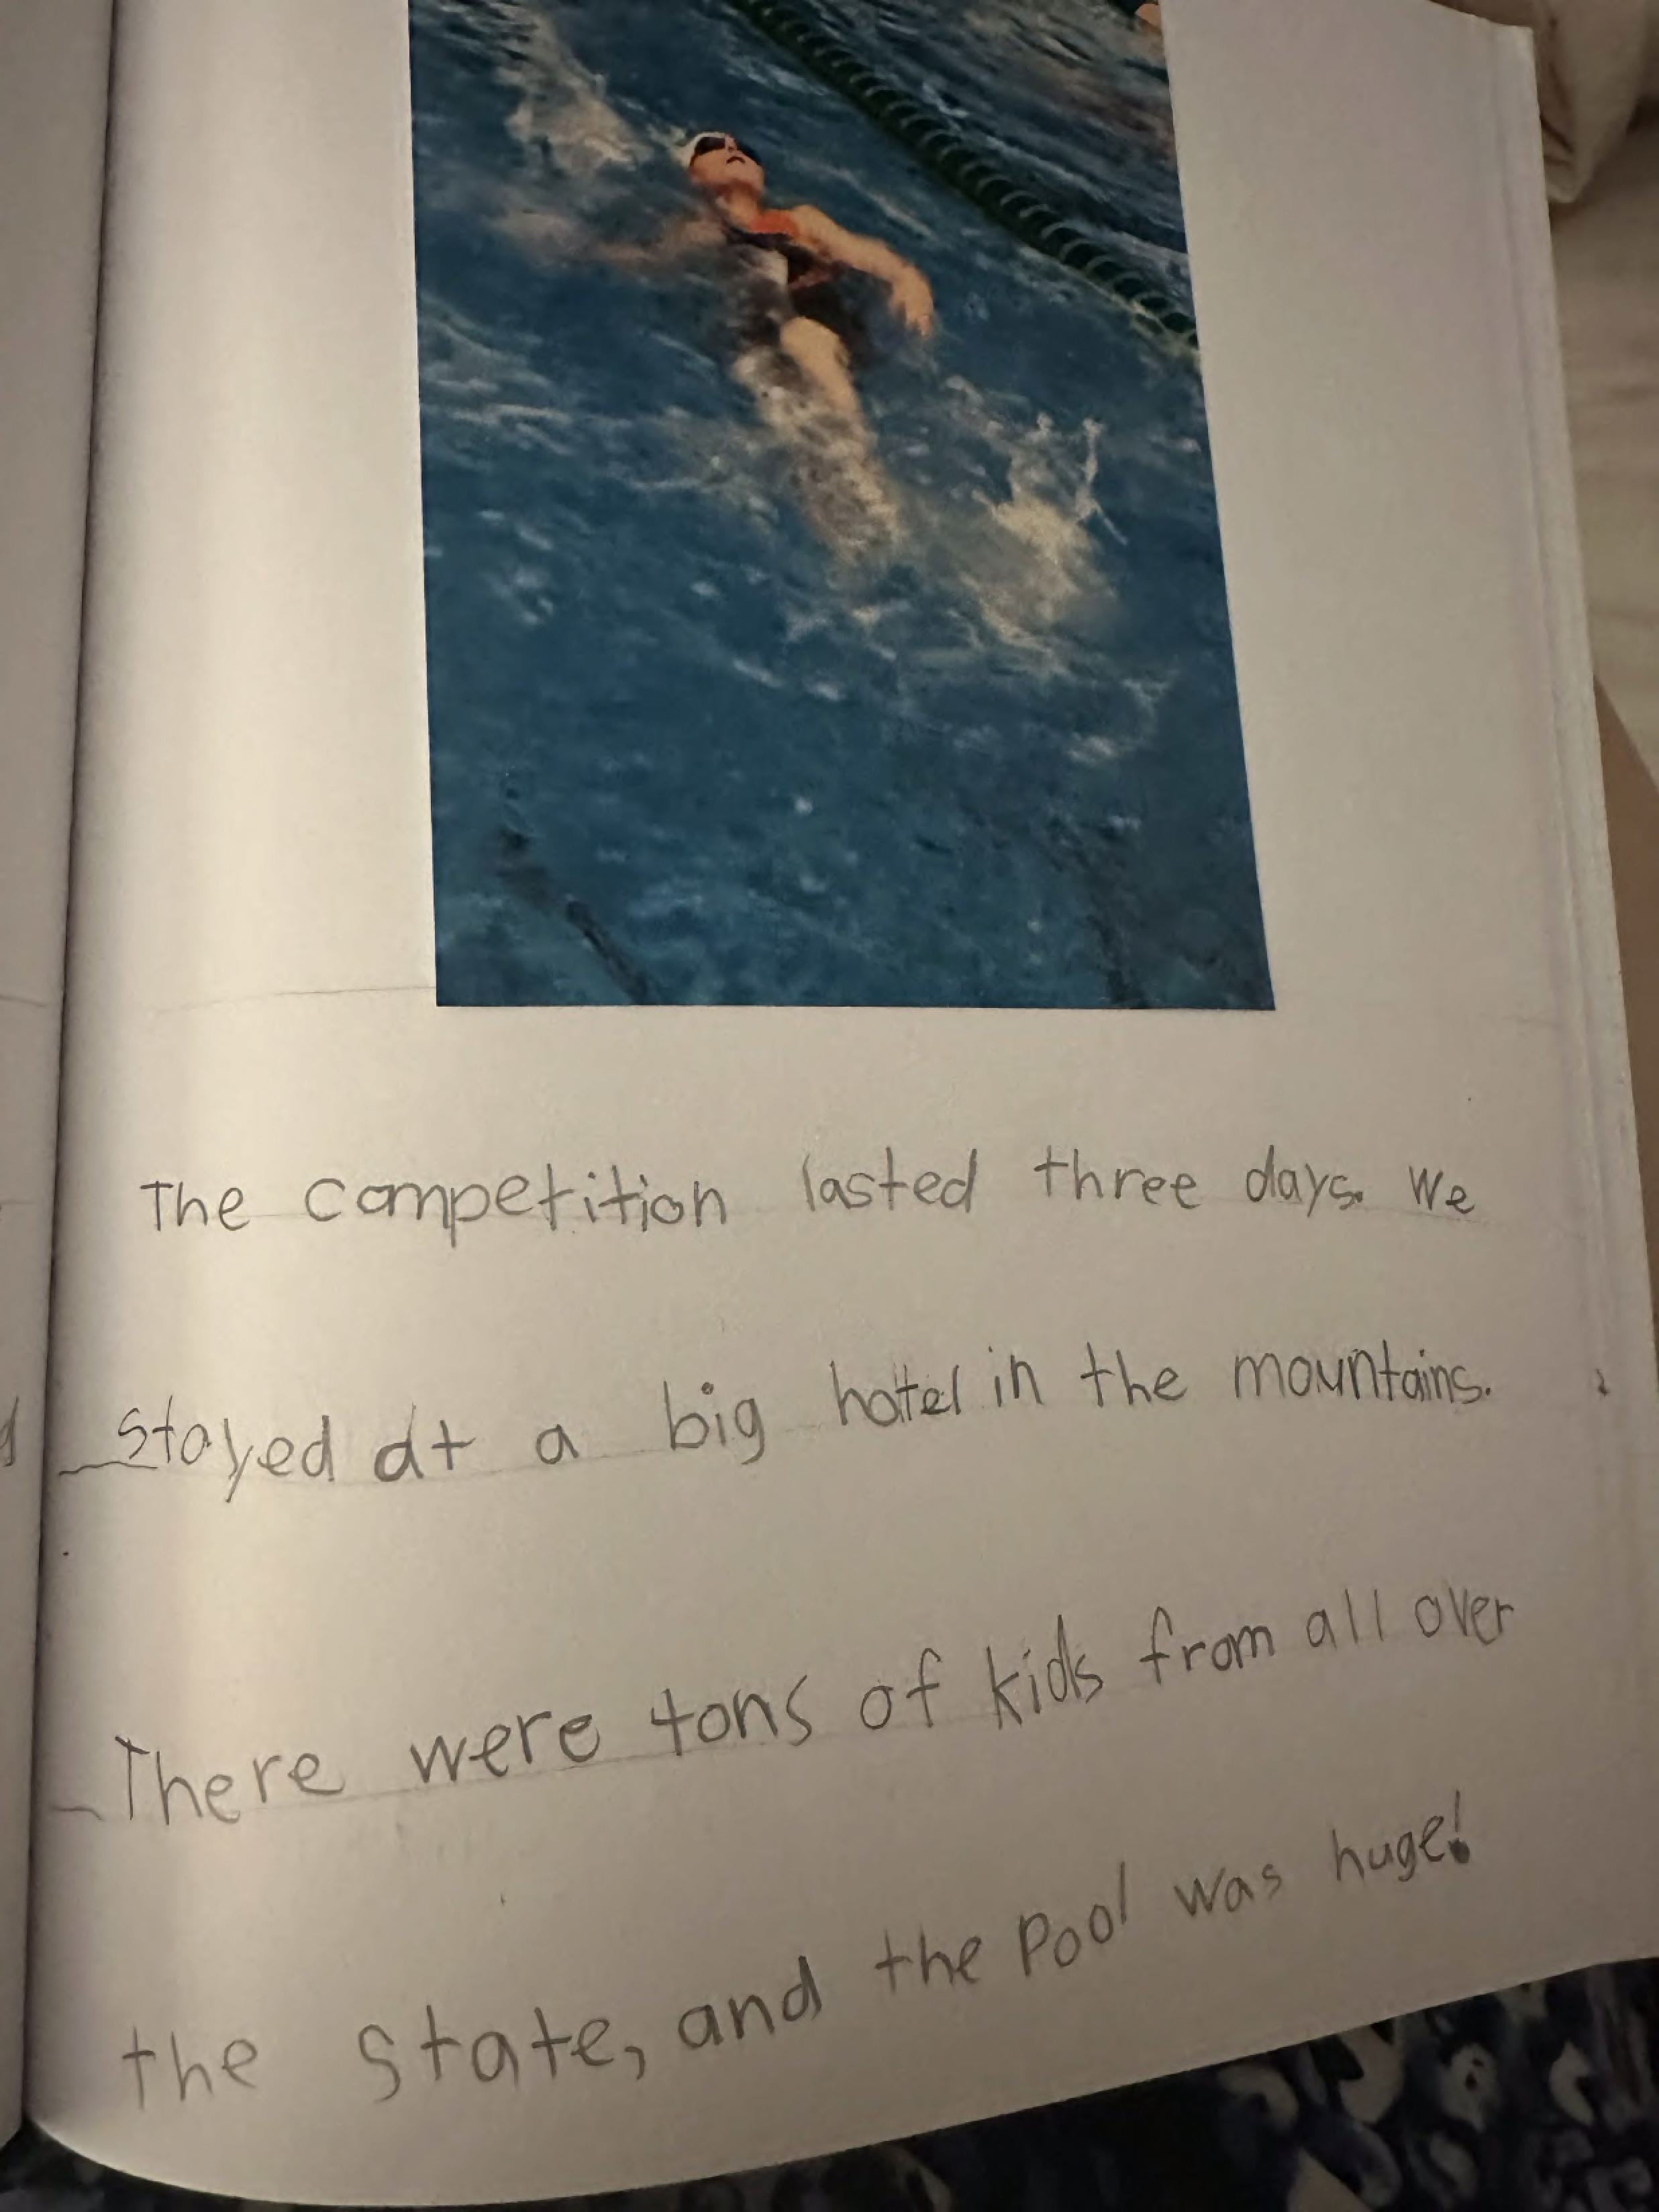 The competition lasted three days. We
stayed at a big hotel in the mountains.
There were tons of kids from all over
the state, and the pool was huge!